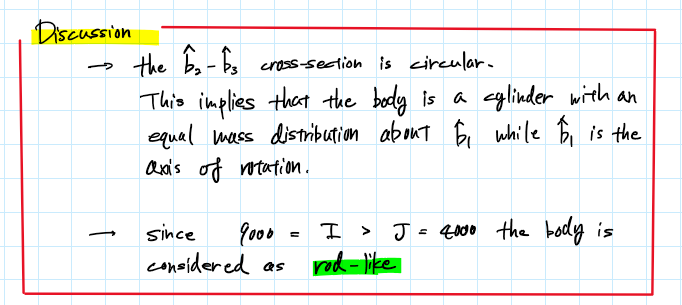 Discussion
→ the b̂₂ - b̂₃ cross-section is circular.
This implies that the body is a cylinder with an
equal mass distribution about b̂₁ while b̂₁ is the
axis of rotation.
→ since 9000 = I > J = 2000 the body is
considered as rod-like